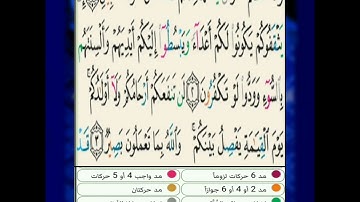 يَثْقَفُوكُمْ يَكُونُوا۟ لَكُمْ أَعْدَآءً وَيَبْسُطُوٓا۟ إِلَيْكُمْ أَيْدِيَهُمْ وَأَلْسِنَتَهُم
بِٱلسُّوٓءِ وَوَدُّوا۟ لَوْ تَكْفُرُونَ ٢ لَن تَنفَعَكُمْ أَرْحَامُكُمْ وَلَآ أَوْلَـٰدُكُمْ ۚ
يَوْمَ ٱلْقِيَـٰمَةِ يَفْصِلُ بَيْنَكُمْ ۚ وَٱللَّهُ بِمَا تَعْمَلُونَ بَصِيرٌ ٣ قَدْ
مد 6 حركات لزوماً مد واجب 4 أو 5 حركات
مد 2 أو 4 أو 6 جوازاً مد حركتان